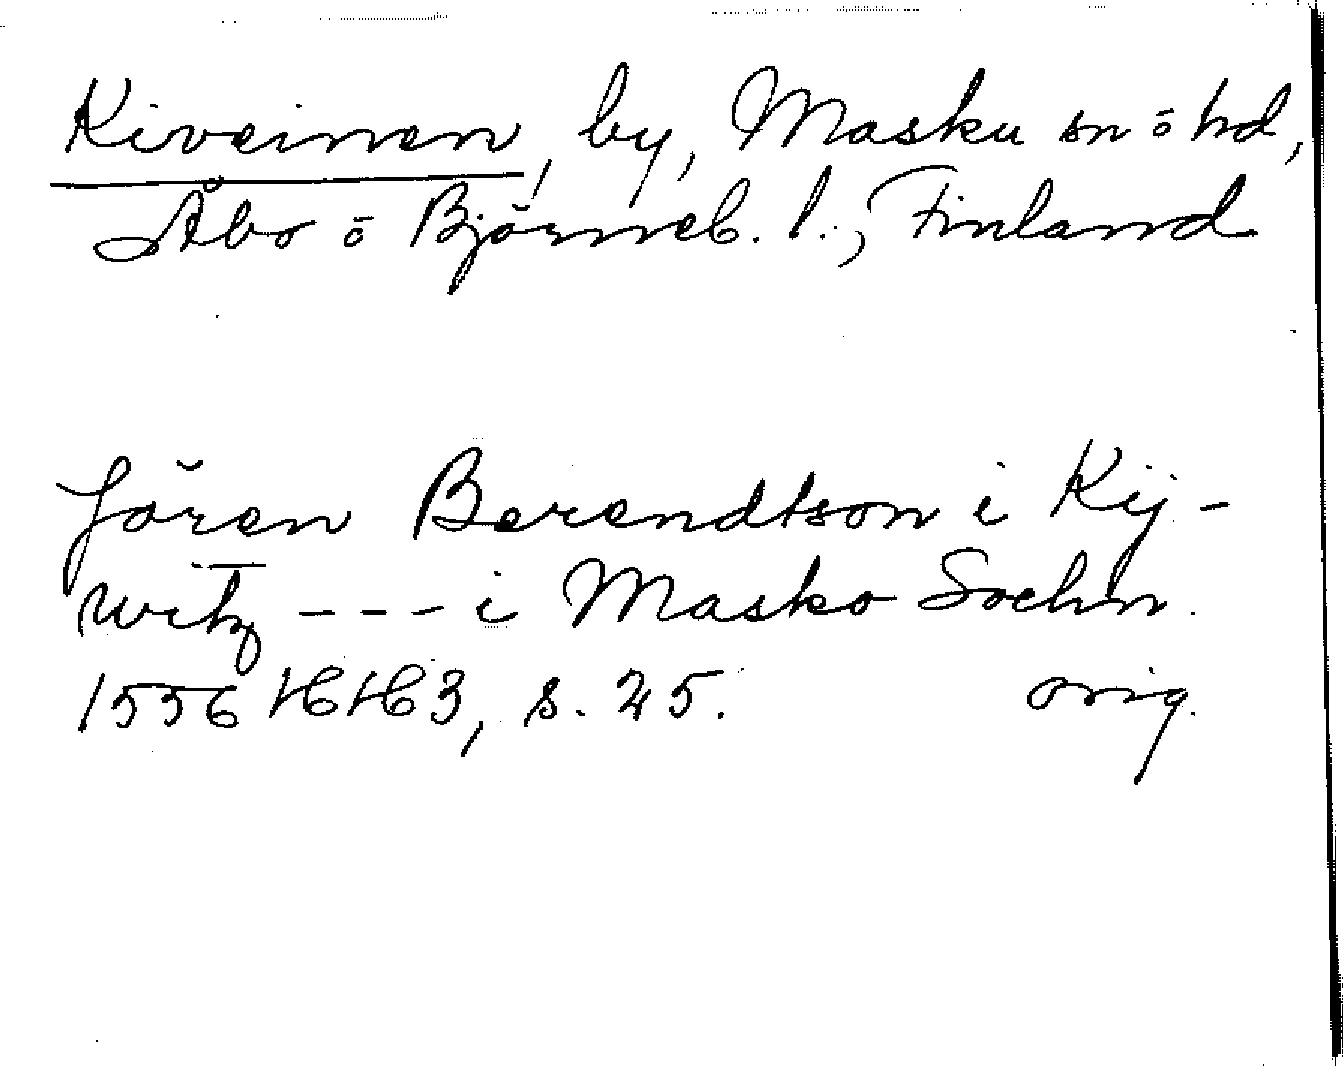 Kiveinen, by, Masku sn ō hd,
Åbo ō Björneb. l., Finland
Jören Berendtson i Kij-
witz --- i Masko Sochn.
1556 16/6 63, s. 25. orig.